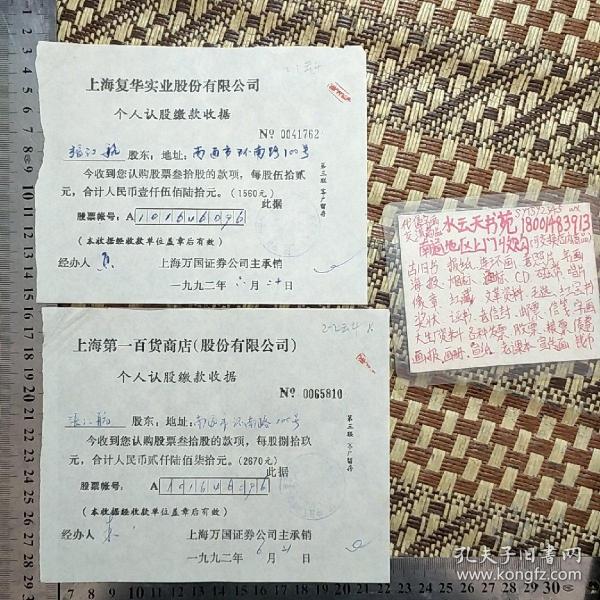 上海复华实业股份有限公司
个人认股缴款收据
№ 0041762
张江航 股东：地址：南通市环南路100号
今收到您认购股票叁拾股的款项，每股伍拾贰
元，合计人民币壹仟伍佰陆拾元。（1560元）
此据
股票帐号： A 101646096
（本收据经收款单位盖章后有效）
经办人 上海万国证券公司主承销
一九九二年 六 月 二十 日
第三联 客户留存
上海第一百货商店（股份有限公司）
个人认股缴款收据
№ 0065810
张江航 股东：地址：南通市环南路100号
今收到您认购股票叁拾股的款项，每股捌拾玖
元，合计人民币贰仟陆佰柒拾元。（2670元）
此据
股票帐号： A 101646096
（本收据经收款单位盖章后有效）
经办人 上海万国证券公司主承销
一九九二年 6 月 21 日
第三联 客户留存
水云天书苑 18001483913
南通地区上门收购
古旧书 报纸 连环画 老照片 年画
海报 CD 磁带 唱片
像章 红藏 文革资料 毛选 红宝书
奖状 证书 实寄封 邮票 信笺 字画
各种发票 股票 粮票
画报 老课本 宣传画 钱币
孔夫子旧书网
www.kongfz.com